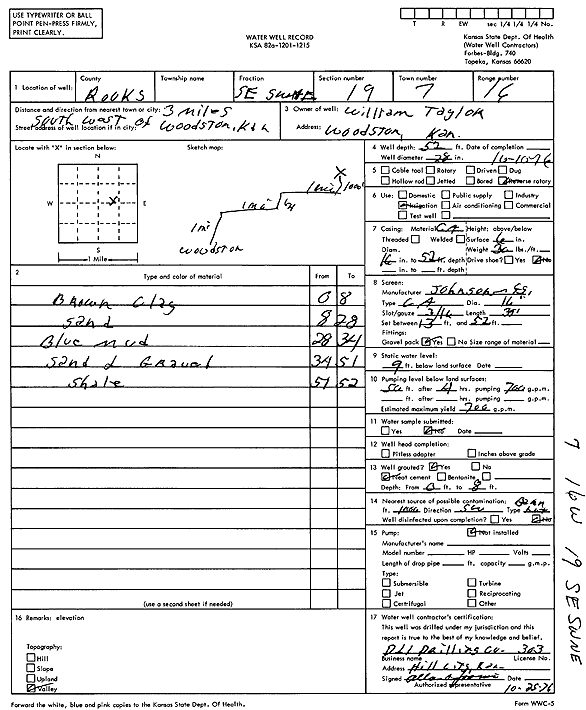 USE TYPEWRITER OR BALL
POINT PEN-PRESS FIRMLY,
PRINT CLEARLY.
WATER WELL RECORD
KSA 82a-1201-1215
T R EW sec 1/4 1/4 1/4 No.
Kansas State Dept. Of Health
(Water Well Contractors)
Forbes-Bldg. 740
Topeka, Kansas 66620
1 Location of well: County Rooks Township name Fraction SE Section number 19 Town number 7 Range number 16
Distance and direction from nearest town or city: 3 miles
South West of Woodston, Kan
Street address of well location if in city:
3 Owner of well: William Taylor
Address: Woodston, Kan.
Locate with "X" in section below:
Sketch map:
N
W X E
S
1 Mile
X
1 mi 1 mi
Woodston
4 Well depth: 52 ft. Date of completion
Well diameter 28 in. 10-10-76
5 Cable tool Rotary Driven Dug
Hollow rod Jetted Bored Reverse rotary
6 Use: Domestic Public supply Industry
Irrigation Air conditioning Commercial
Test well
7 Casing: Material Height: above/below
Threaded Welded Surface in.
Diam. Weight lbs./ft.
16 in. to 52 ft. depth Drive shoe? Yes No
in. to ft. depth
2 Type and color of material From To
Brown Clay 0 8
Sand 8 28
Blue mud 28 34
Sand & Gravel 34 51
Shale 51 52
(use a second sheet if needed)
8 Screen:
Manufacturer Johnson
Type Dia. 16"
Slot/gauze 3/16 Length
Set between 13 ft. and 52 ft.
Fittings:
Gravel pack Yes No Size range of material
9 Static water level:
9 ft. below land surface Date
10 Pumping level below land surfaces:
50 ft. after 4 hrs. pumping 700 g.p.m.
ft. after hrs. pumping g.p.m.
Estimated maximum yield 700 g.p.m.
11 Water sample submitted:
Yes No Date
12 Well head completion:
Pitless adapter Inches above grade
13 Well grouted? Yes No
Neat cement Bentonite
Depth: From 0 ft. to 8 ft.
14 Nearest source of possible contamination:
ft. 1000 Direction SW Type
Well disinfected upon completion? Yes No
15 Pump: Not installed
Manufacturer's name
Model number HP Volts
Length of drop pipe ft. capacity g.m.p.
Type:
Submersible Turbine
Jet Reciprocating
Certrifugal Other
16 Remarks: elevation
Topography:
Hill
Slope
Upland
Valley
17 Water well contractor's certification:
This well was drilled under my jurisdiction and this
report is true to the best of my knowledge and belief.
Drilling Co. 303
Business name License No.
Address Hill City, Kan
Signed Date
Authorized representative 10-25-76
Forward the white, blue and pink copies to the Kansas State Dept. Of Health.
Form WWC-5
7 16W 19 SE SWNE